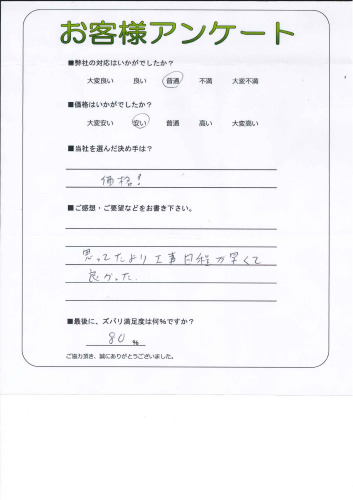 お客様アンケート
■弊社の対応はいかがでしたか？
大変良い 良い 普通 不満 大変不満
■価格はいかがでしたか？
大変安い 安い 普通 高い 大変高い
■当社を選んだ決め手は？
価格！
■ご感想・ご要望などをお書き下さい。
思ってたより工事日程が早くて
良かった.
■最後に、ズバリ満足度は何％ですか？
80 %
ご協力頂き、誠にありがとうございました。